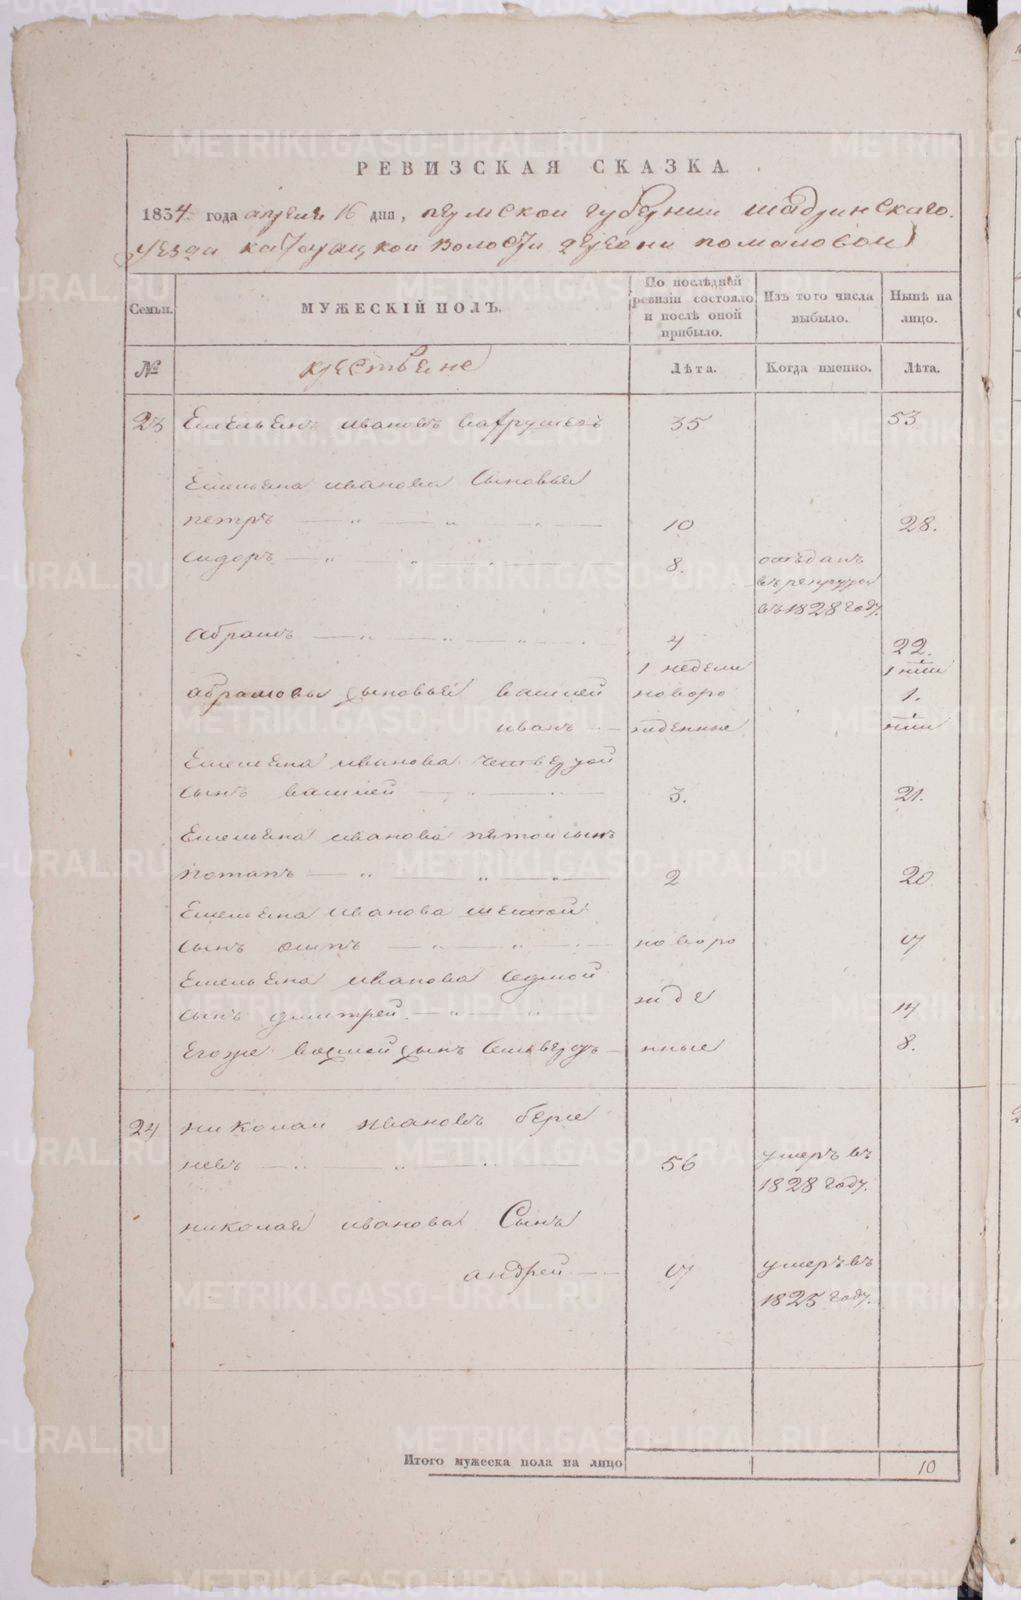 РЕВИЗСКАЯ СКАЗКА.
1834 года апреля 16 дня, пермской губернии шадринскаго
уезда волости деревни помаловой
Семьи. МУЖЕСКІЙ ПОЛЪ. По послѣдней ревизіи состояло и послѣ оной прибыло. Изъ того числа выбыло. Нынѣ на лицо.
№ крестьяне Лѣта. Когда именно. Лѣта.
23 Емельянъ ивановъ вахрушевъ 35 53
Емельяна иванова Сыновья
петръ 10 28.
сидоръ 8. отъданъ
въ рекруты
въ 1828 году.
абрамъ 4 22.
1 недели
абрамовы сыновья новоро 1.
иванъ жденные
Емельяна иванова четвертой
сынъ 3. 21.
Емельяна иванова пятой сынъ
потапъ 2 20
Емельяна иванова шестой
сынъ осипъ новоро 17
Емельяна иванова седмой
сынъ дмитрей жде 14
Егоже восмой сынъ нные 8.
24 николай ивановъ берсе
невъ 56 умеръ въ
1828 году.
николая иванова Сынъ
андрей 17 умеръ въ
1825 году.
Итого мужеска пола на лицо 10
METRIKI.GASO-URAL.RU